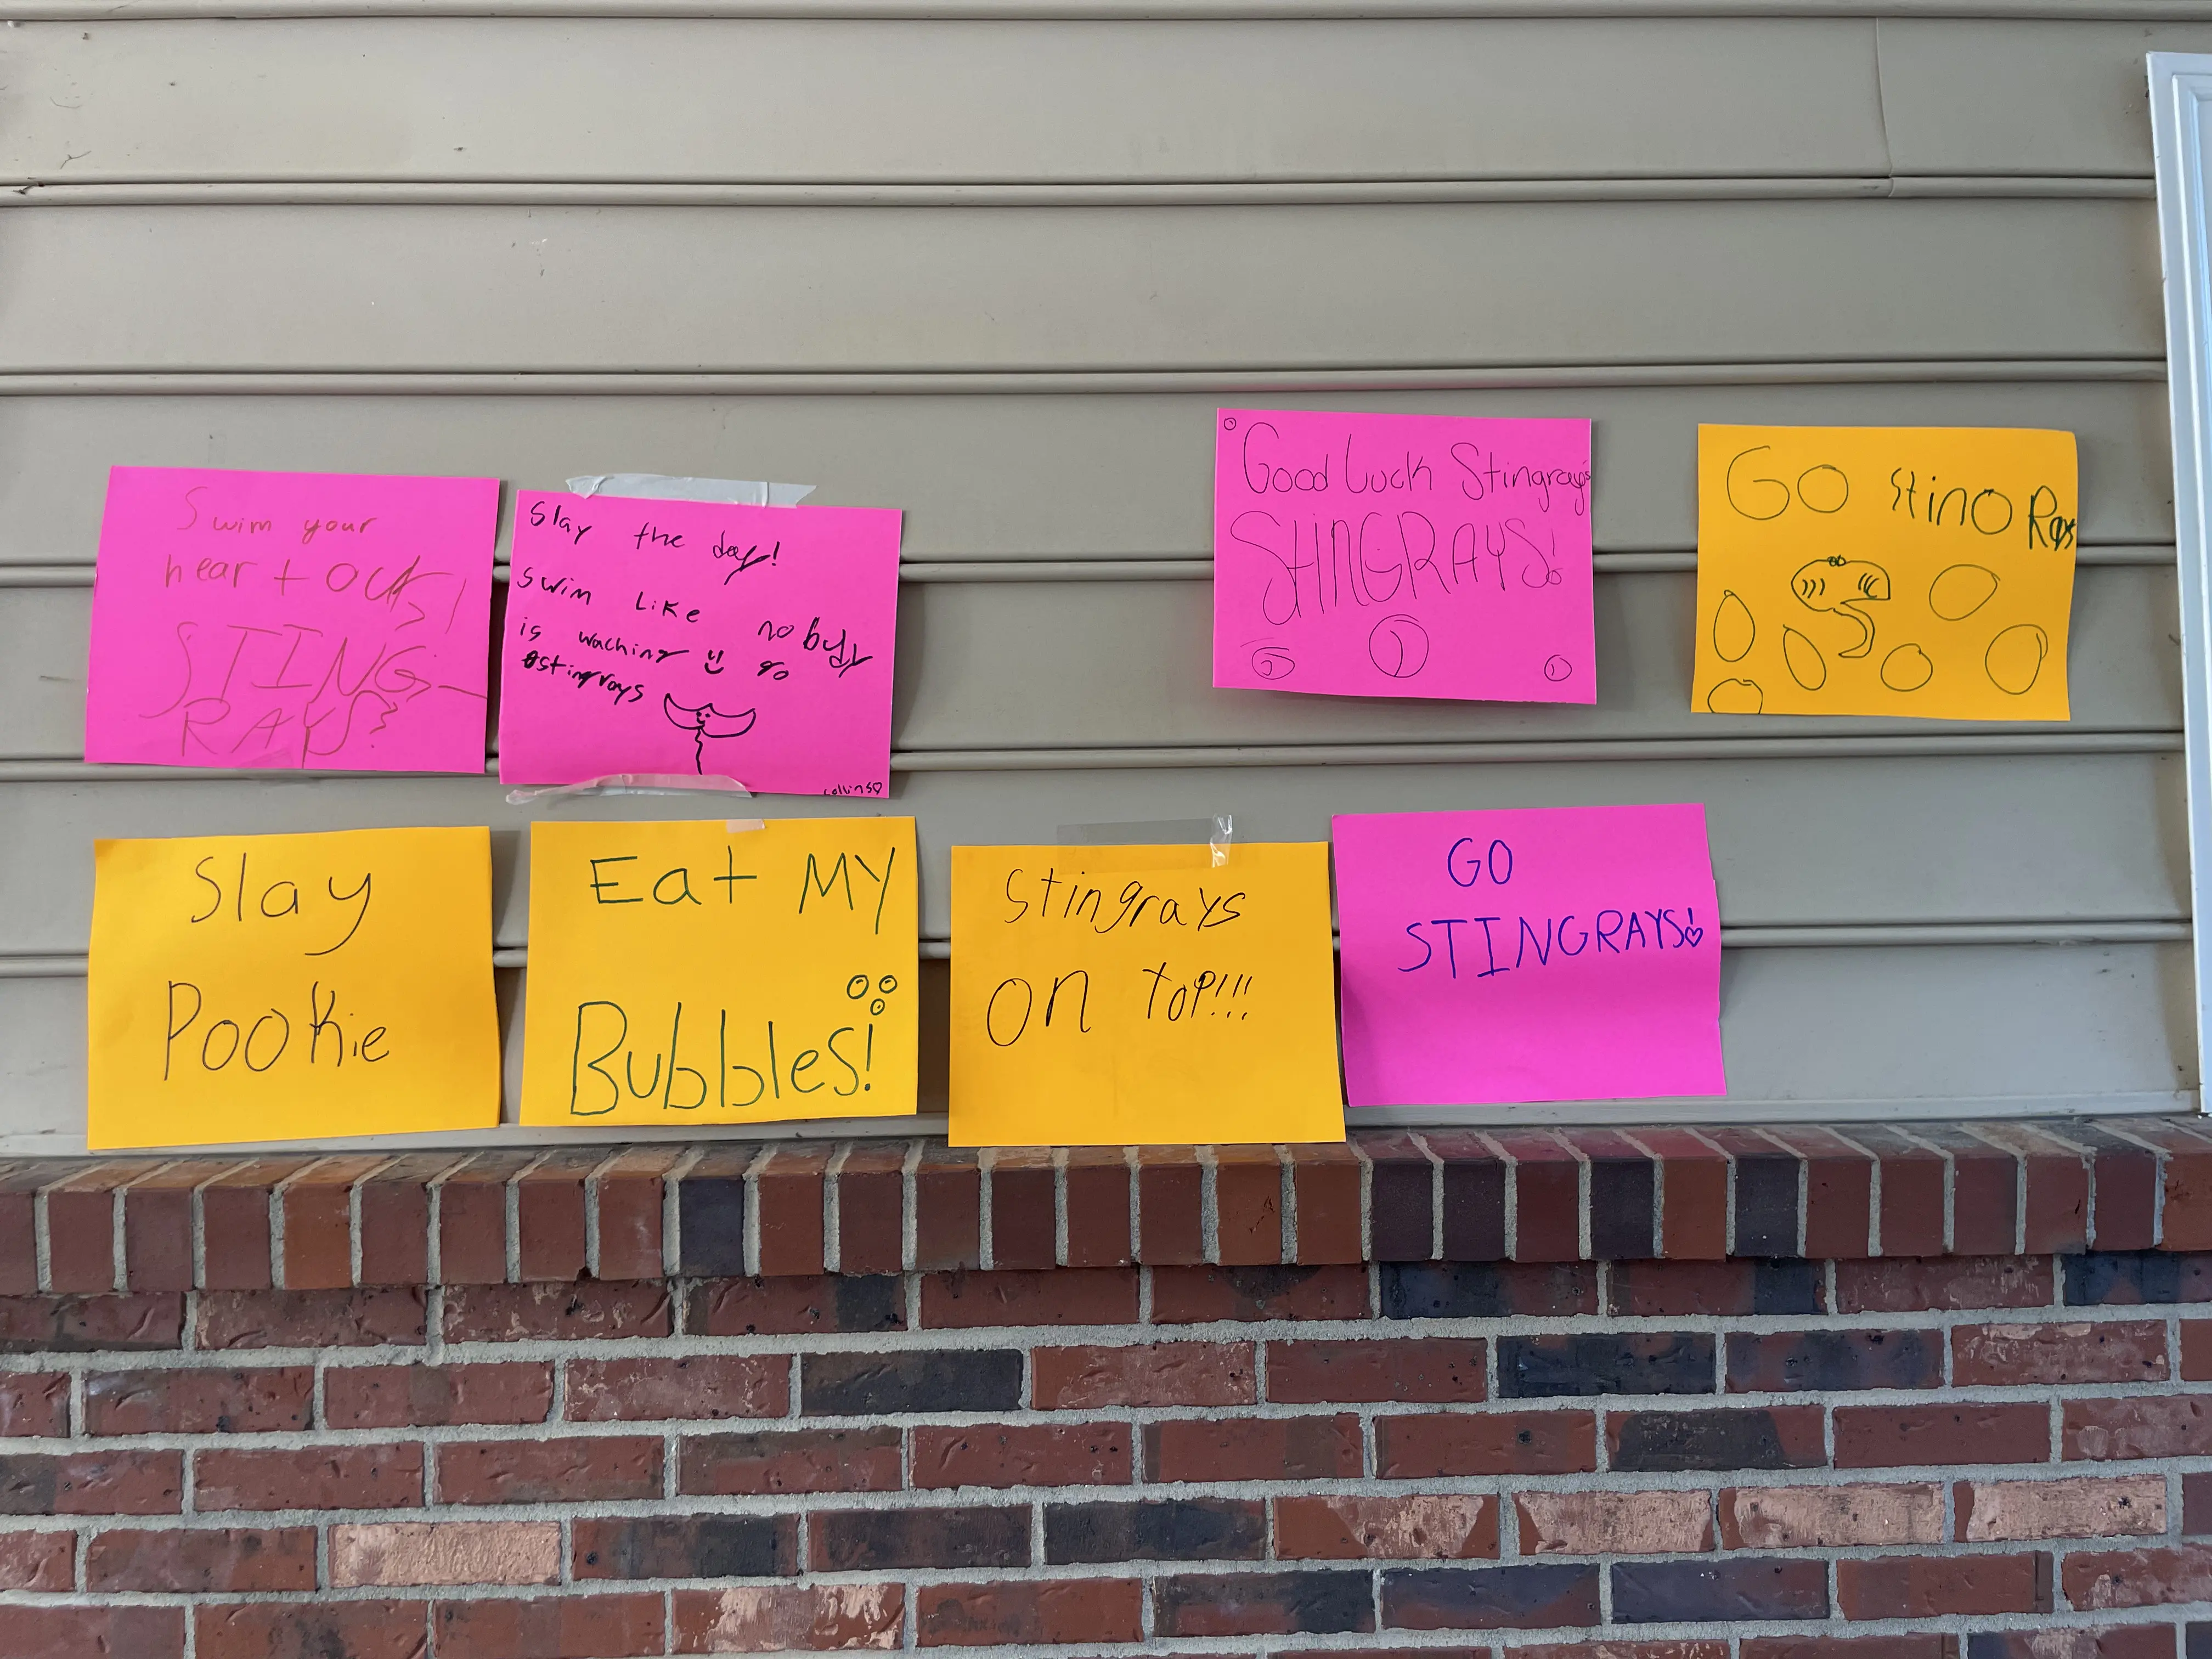 Swim your
heart out!
STING-
RAYS
Slay the day!
Swim Like nobody
is waching go
stingrays
collins
Good Luck Stingray's
STINGRAYS!
GO Stino Rays
Slay
Pookie
Eat MY
Bubbles!
Stingrays
on ToP!!!
GO
STINGRAYS!